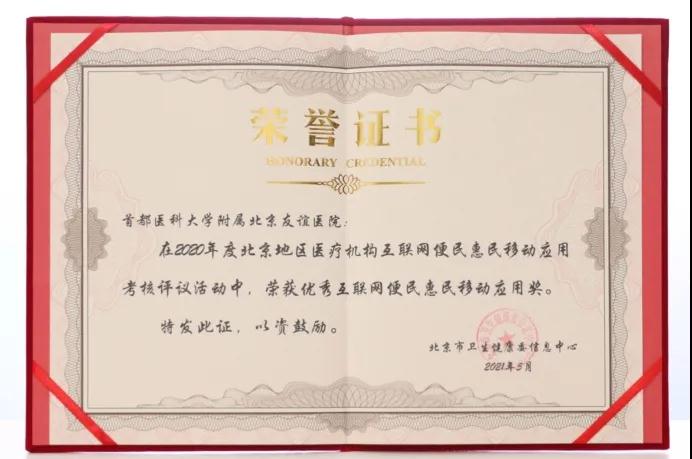 荣誉证书
HONORARY CREDENTIAL
首都医科大学附属北京友谊医院:
在2020年度北京地区医疗机构互联网便民惠民移动应用
考核评议活动中，荣获优秀互联网便民惠民移动应用奖。
特发此证，以资鼓励。
北京市卫生健康委信息中心
2021年3月